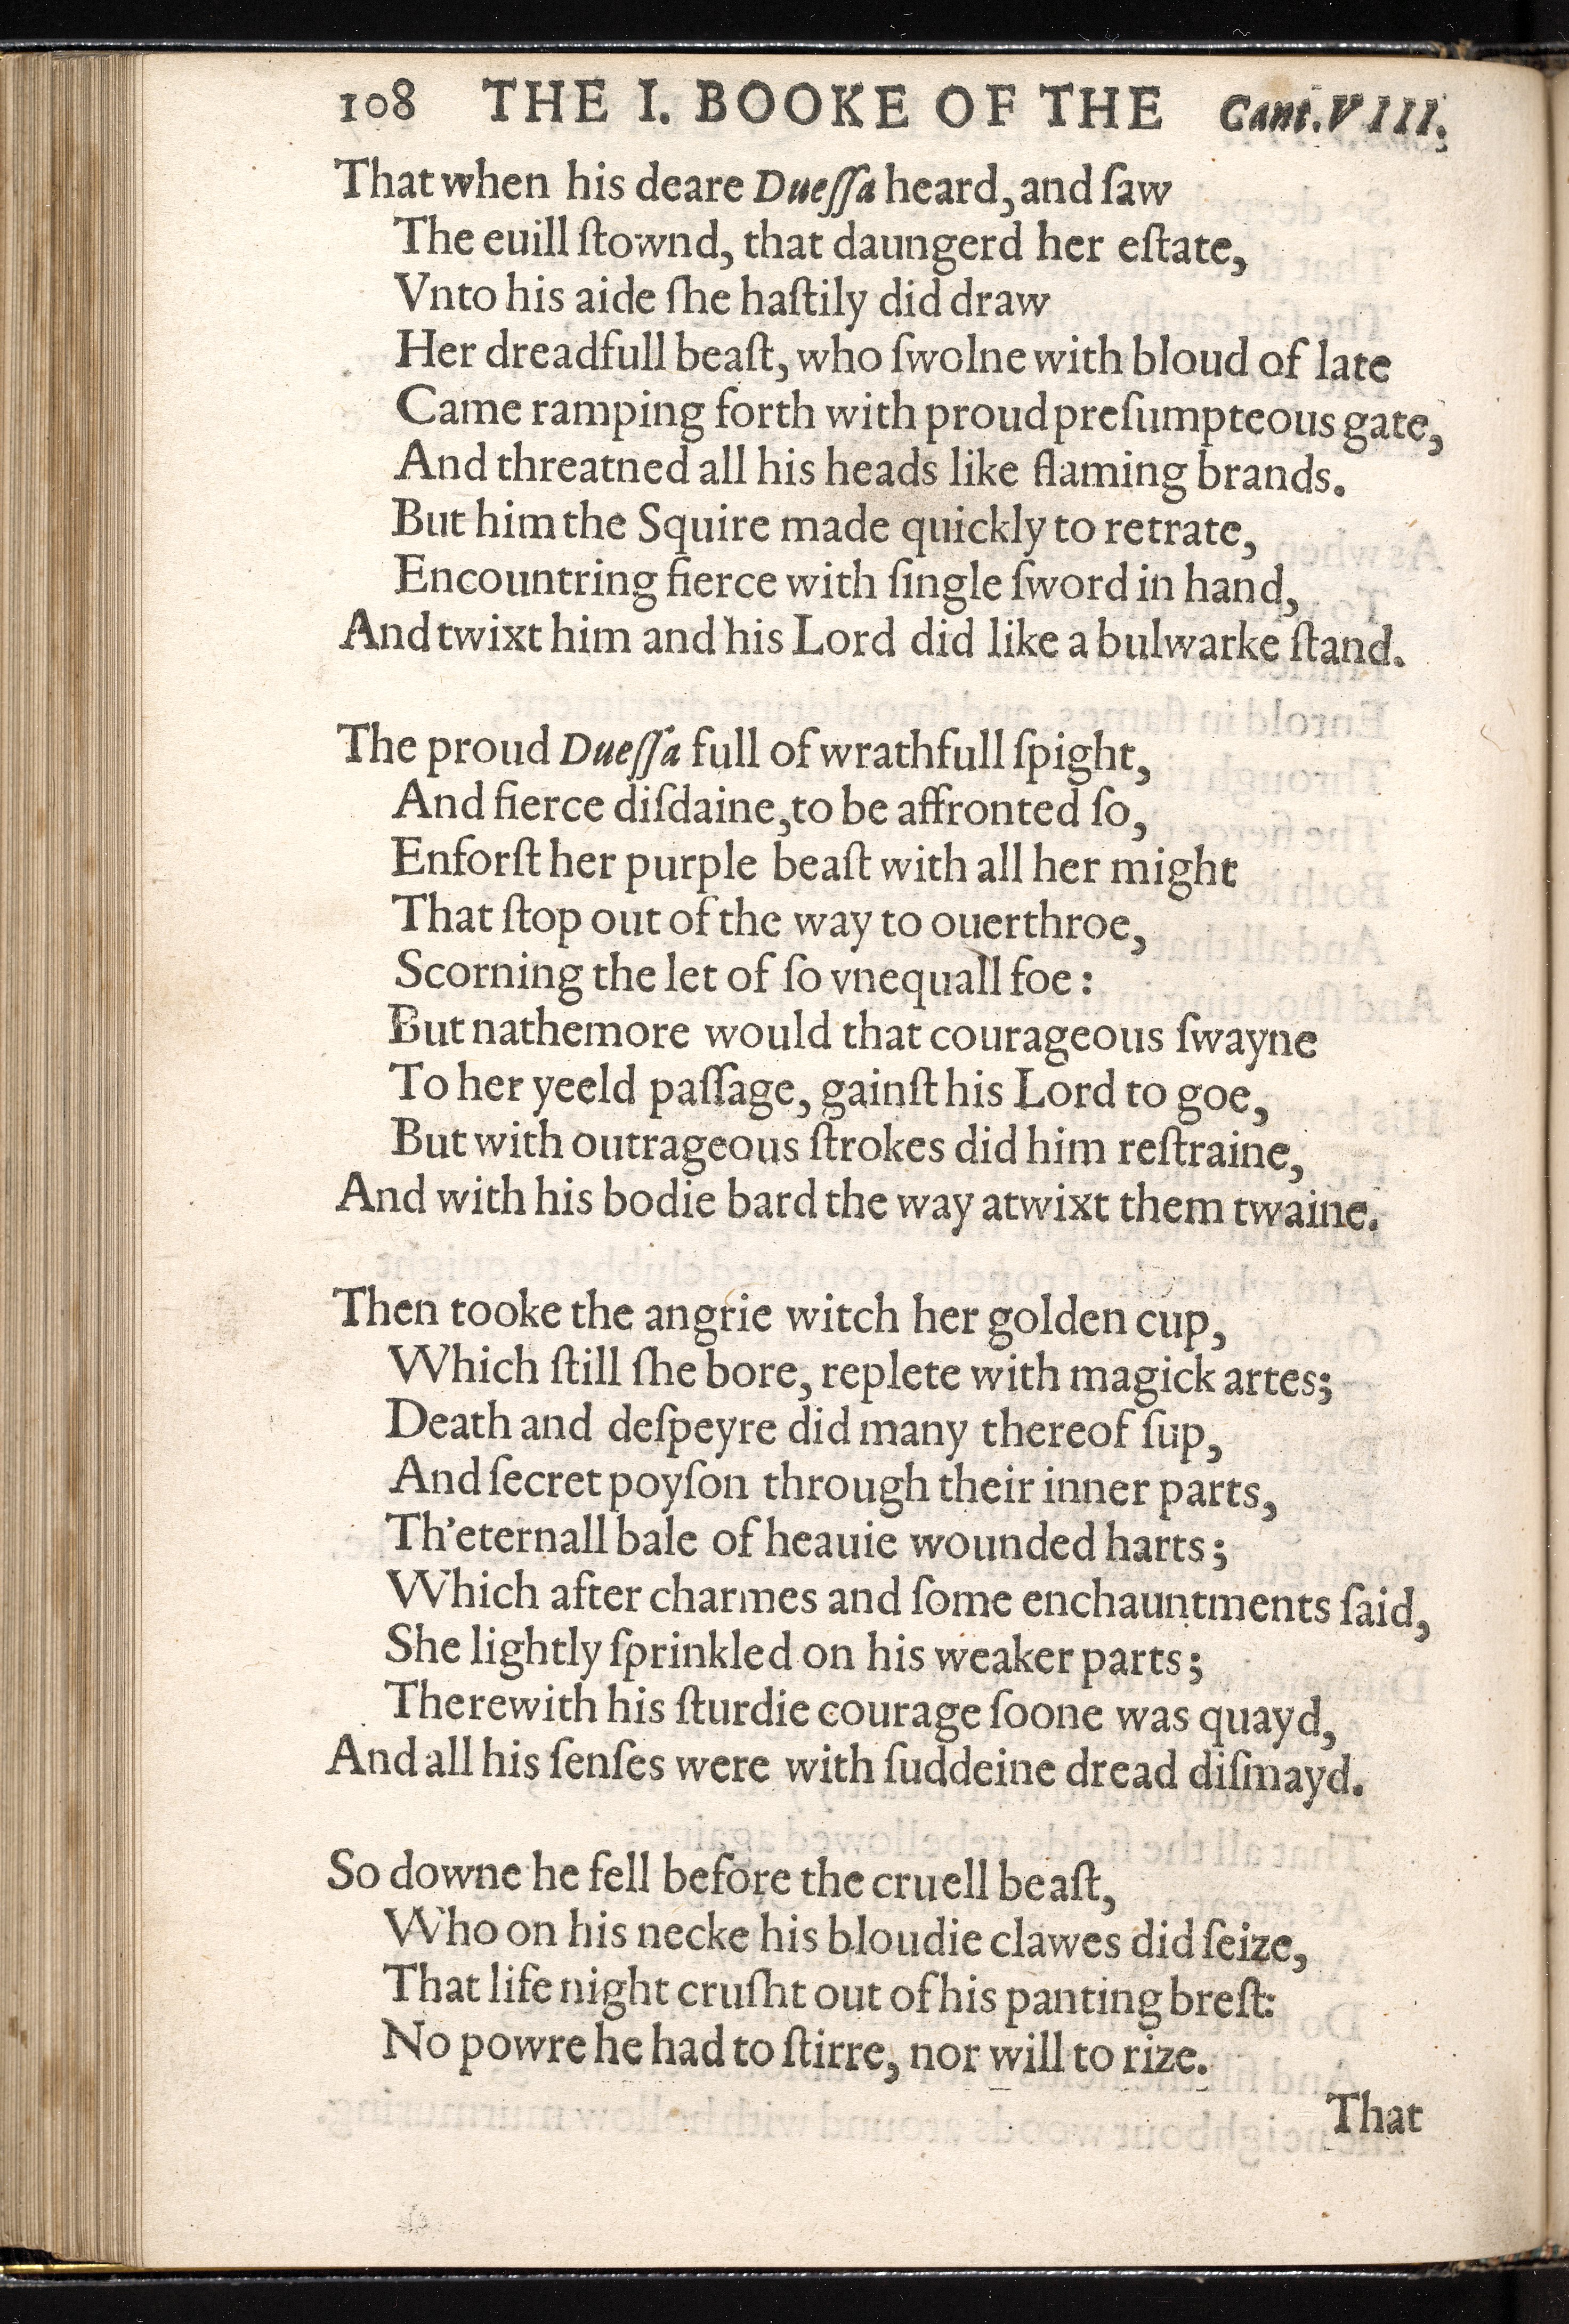 108 THE I. BOOKE OF THE Cant. VIII.
That when his deare Dueſſa heard, and ſaw
The euill ſtownd, that daungerd her eſtate,
Vnto his aide ſhe haſtily did draw
Her dreadfull beaſt, who ſwolne with bloud of late
Came ramping forth with proud preſumpteous gate,
And threatned all his heads like flaming brands.
But him the Squire made quickly to retrate,
Encountring fierce with ſingle ſword in hand,
And twixt him and his Lord did like a bulwarke ſtand.
The proud Dueſſa full of wrathfull ſpight,
And fierce diſdaine, to be affronted ſo,
Enforſt her purple beaſt with all her might
That ſtop out of the way to ouerthroe,
Scorning the let of ſo vnequall foe:
But nathemore would that courageous ſwayne
To her yeeld paſſage, gainſt his Lord to goe,
But with outrageous ſtrokes did him reſtraine,
And with his bodie bard the way atwixt them twaine.
Then tooke the angrie witch her golden cup,
Which ſtill ſhe bore, replete with magick artes;
Death and deſpeyre did many thereof ſup,
And ſecret poyſon through their inner parts,
Th'eternall bale of heauie wounded harts;
Which after charmes and ſome enchauntments ſaid,
She lightly ſprinkled on his weaker parts;
Therewith his ſturdie courage ſoone was quayd,
And all his ſenſes were with ſuddeine dread diſmayd.
So downe he fell before the cruell beaſt,
Who on his necke his bloudie clawes did ſeize,
That life night cruſht out of his panting breſt:
No powre he had to ſtirre, nor will to rize.
That